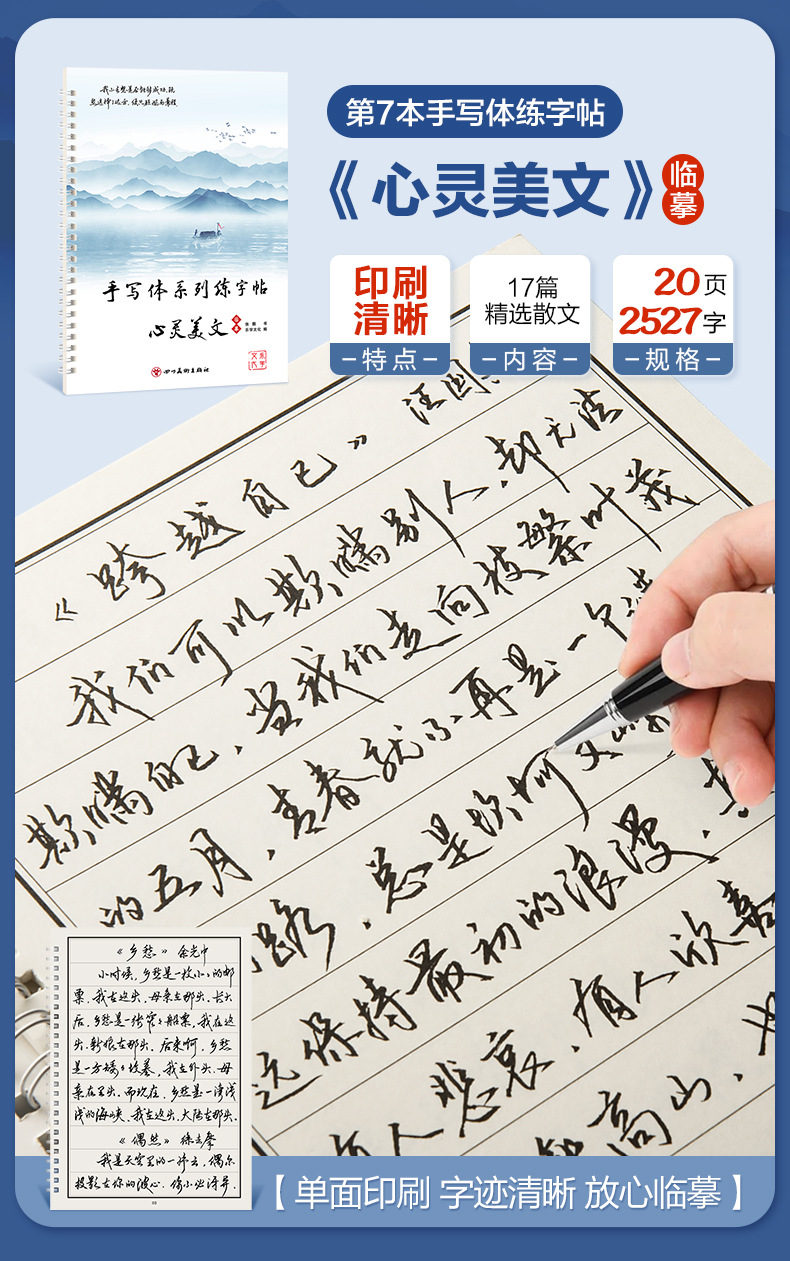 第7本手写体练字帖
《心灵美文》
临摹
印刷清晰
-特点-
17篇
精选散文
-内容-
20页
2527字
-规格-
手写体系列练字帖
心灵美文
四川美术出版社
《跨越自己》 汪国
我们可以欺瞒别人,却无法
欺瞒自己,当我们走向枝繁叶茂
的五月,青春就不再是一个谜
路,总是
保持最初的浪漫,
这 有人欣喜
有人悲哀,
高山,
《乡愁》 余光中
小时候,乡愁是一枚小小的邮
票,我在这头,母亲在那头.长大
后,乡愁是一张窄窄船票,我在这
头.新娘在那头.后来啊,乡愁
是一方矮矮坟墓,我在外头.母
亲在里头.而现在,乡愁是一湾浅
浅的海峡.我在这头.大陆在那头.
《偶然》 徐志摩
我是天空里的一片云,偶尔
投影在你的波心.你不必讶异.
【单面印刷 字迹清晰 放心临摹】